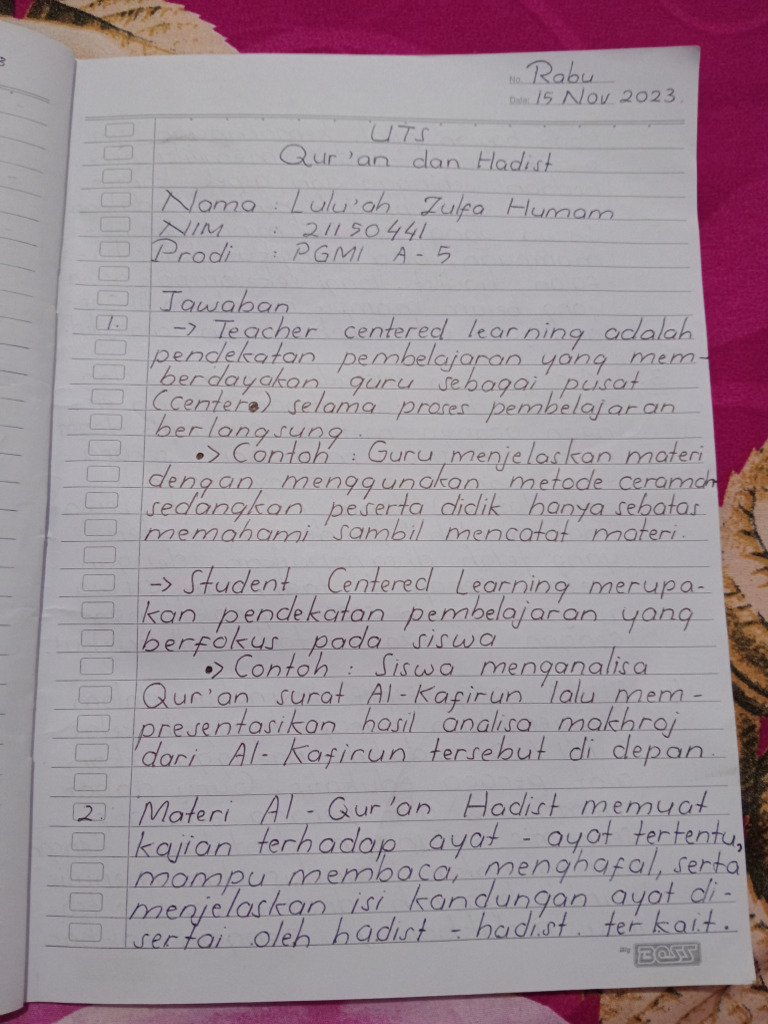 3
No. Rabu
Date: 15 Nov 2023.
UTS
Qur'an dan Hadist
Nama : Lulu'ah Zulfa Humam
NIM : 21150441
Prodi : PGMI A-5
Jawaban
1. -> Teacher centered learning adalah
pendekatan pembelajaran yang mem-
berdayakan guru sebagai pusat
(center) selama proses pembelajaran
berlangsung.
•> Contoh : Guru menjelaskan materi
dengan menggunakan metode ceramah
sedangkan peserta didik hanya sebatas
memahami sambil mencatat materi.
-> Student Centered Learning merupa-
kan pendekatan pembelajaran yang
berfokus pada siswa
•> Contoh : Siswa menganalisa
Qur'an surat Al-Kafirun lalu mem-
presentasikan hasil analisa makhroj
dari Al-Kafirun tersebut di depan.
2. Materi Al-Qur'an Hadist memuat
kajian terhadap ayat - ayat tertentu,
mampu membaca, menghafal, serta
menjelaskan isi kandungan ayat di-
sertai oleh hadist - hadist. terkait.
By BOSS